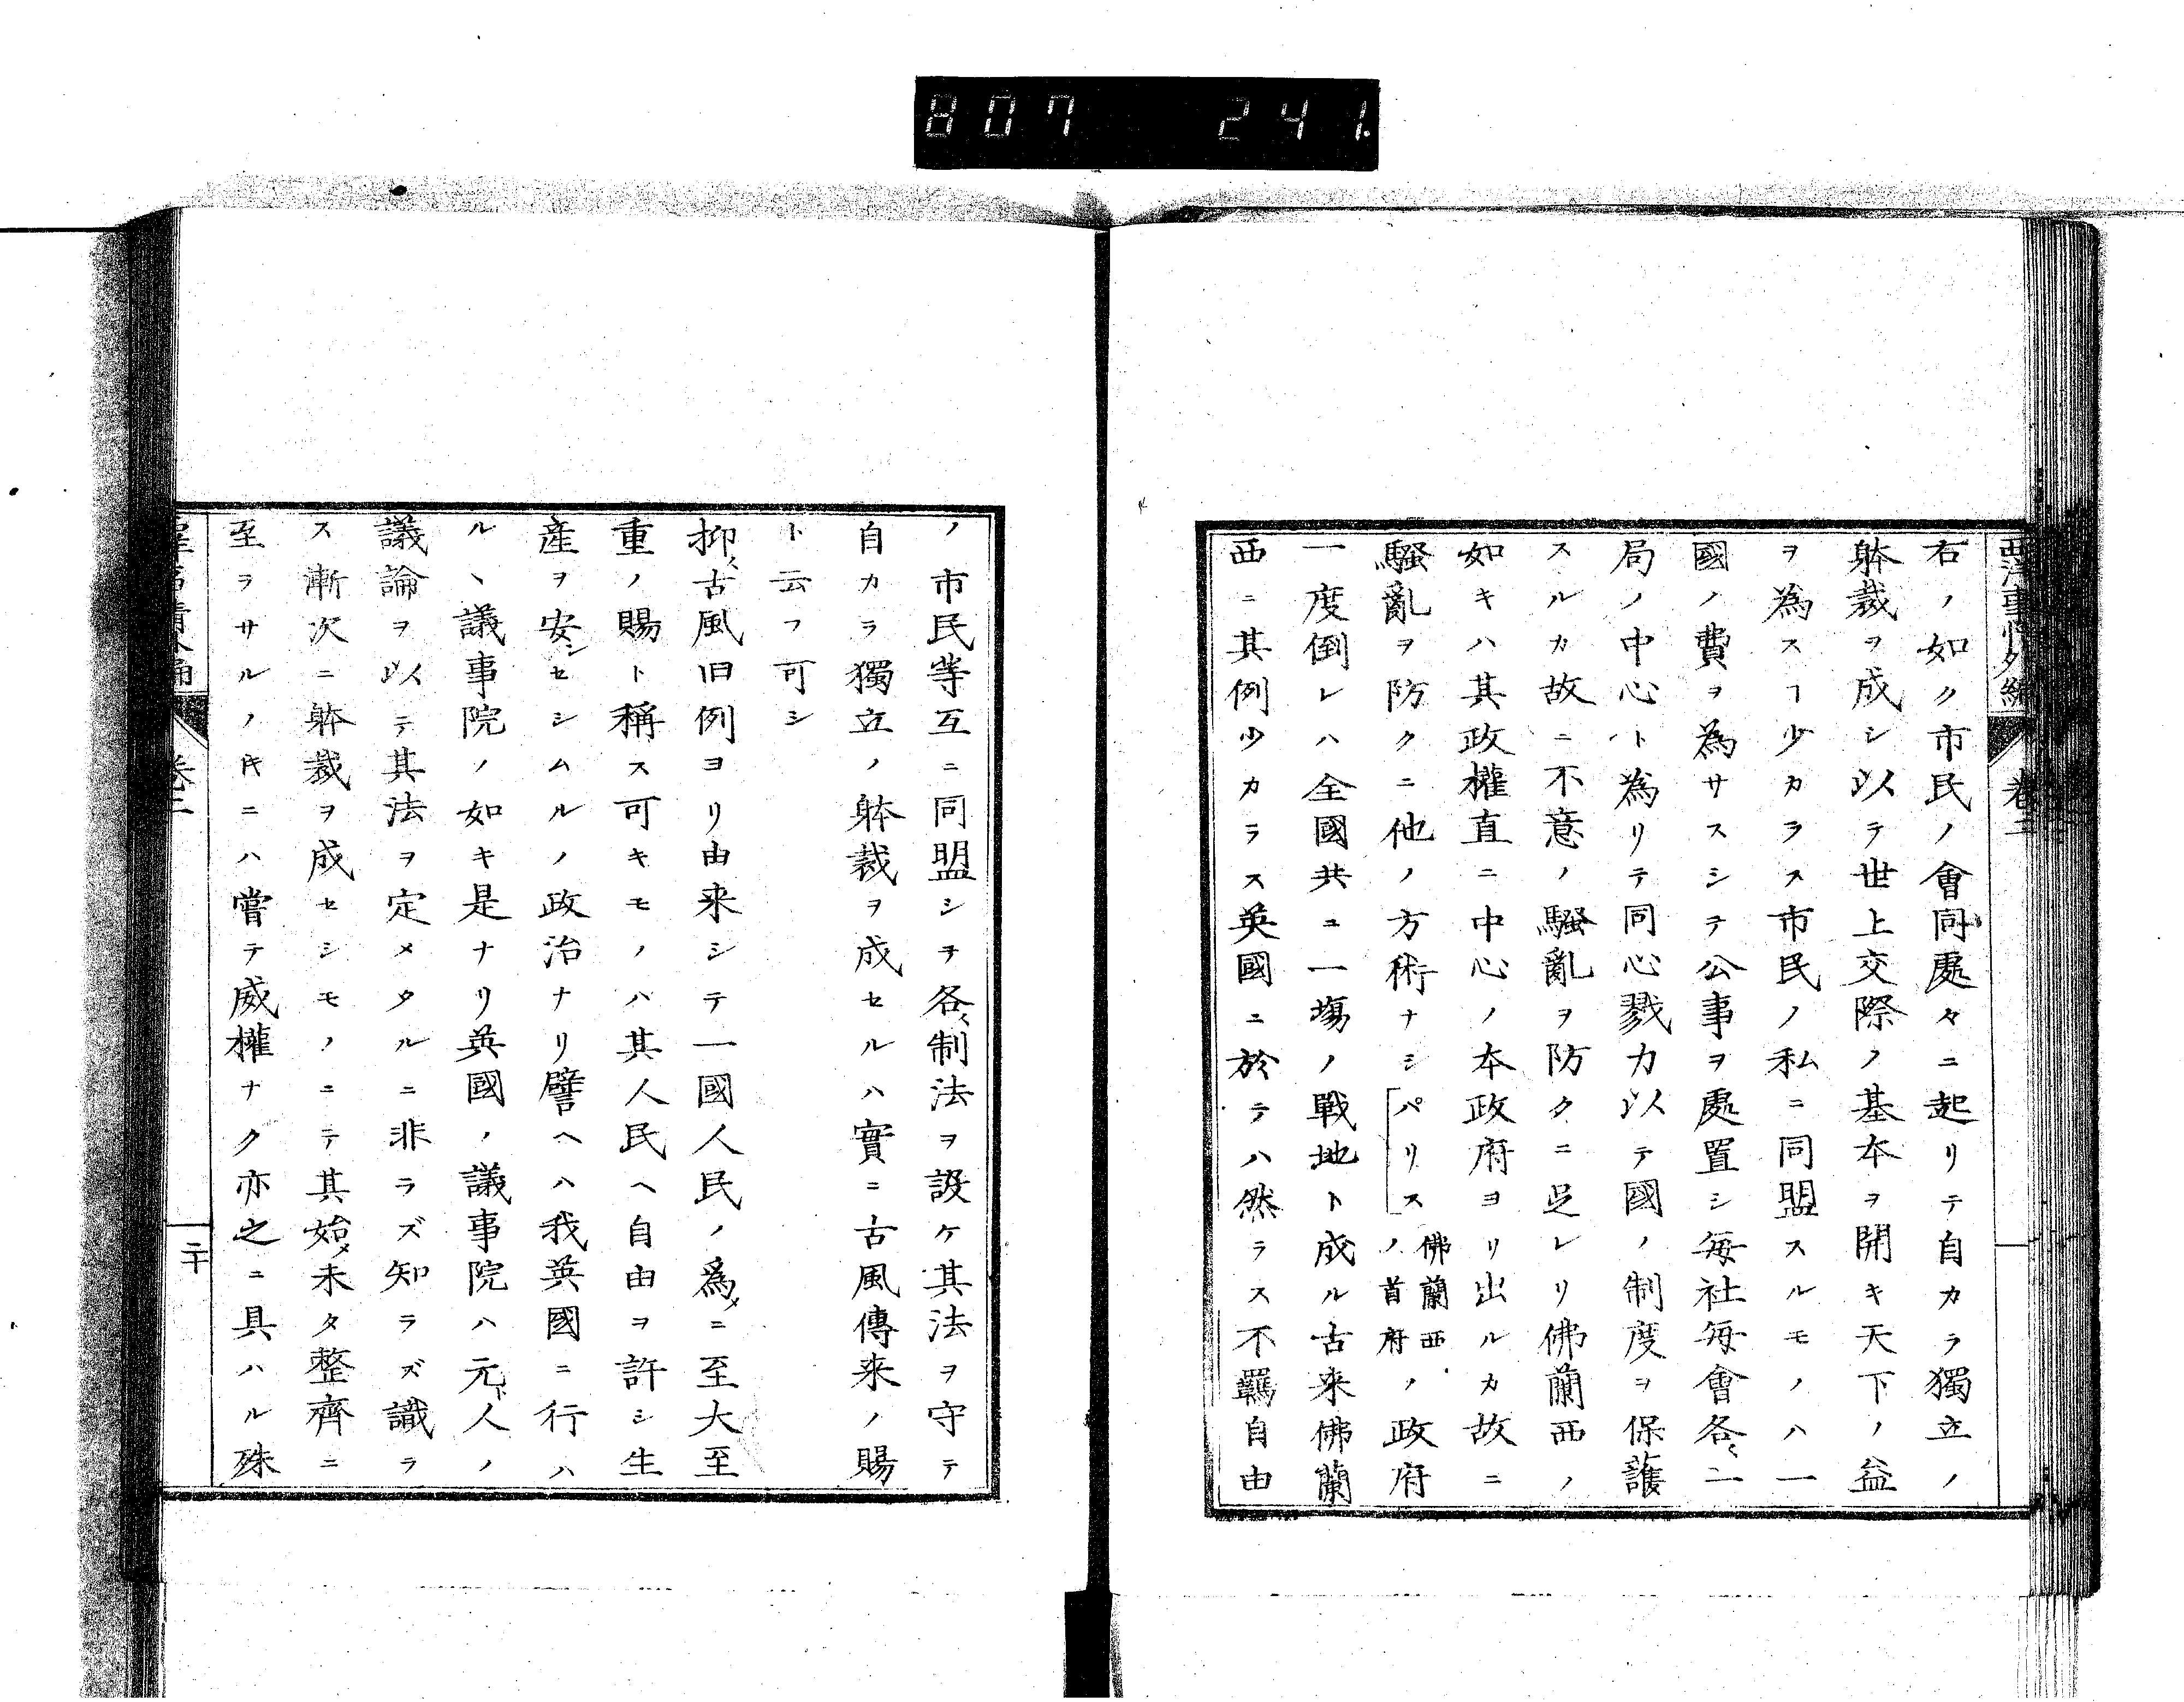 807 241.
西洋事情外編 卷二
右ノ如ク市民ノ會同處々ニ起リテ自カラ獨立ノ
躰裁ヲ成シ以テ世上交際ノ基本ヲ開キ天下ノ益
ヲ為スヿ少カラス市民ノ私ニ同盟スルモノハ一
國ノ費ヲ為サスシテ公事ヲ處置シ毎社毎會各〻一
局ノ中心ト為リテ同心戮力以テ國ノ制度ヲ保護
スルカ故ニ不意ノ騷亂ヲ防クニ足レリ佛蘭西ノ
如キハ其政權直ニ中心ノ本政府ヨリ出ルカ故ニ
騷亂ヲ防クニ他ノ方術ナシパリス佛蘭西ノ首府ノ政府
一度倒レハ全國共ニ一塲ノ戰地ト成ル古来佛蘭
西ニ其例少カラス英國ニ於テハ然ラス不羈自由
ノ市民等互ニ同盟シヲ各〻制法ヲ設ケ其法ヲ守テ
自カラ獨立ノ躰裁ヲ成セルハ實ニ古風傳来ノ賜
ト云フ可シ
抑〻古風旧例ヨリ由来シテ一國人民ノ爲メニ至大至
重ノ賜ト稱ス可キモノハ其人民ヘ自由ヲ許シ生
産ヲ安シセシムルノ政治ナリ譬ヘハ我英國ニ行ハ
ルヽ議事院ノ如キ是ナリ英國ノ議事院ハ元ト人ノ
議論ヲ以テ其法ヲ定メタルニ非ラズ知ラズ識ラ
ス漸次ニ躰裁ヲ成セシモノニテ其始メ未タ整齊ニ
至ヲサルノ𪜈ニハ嘗テ威權ナク亦之ニ具ハル殊
卷二
二十